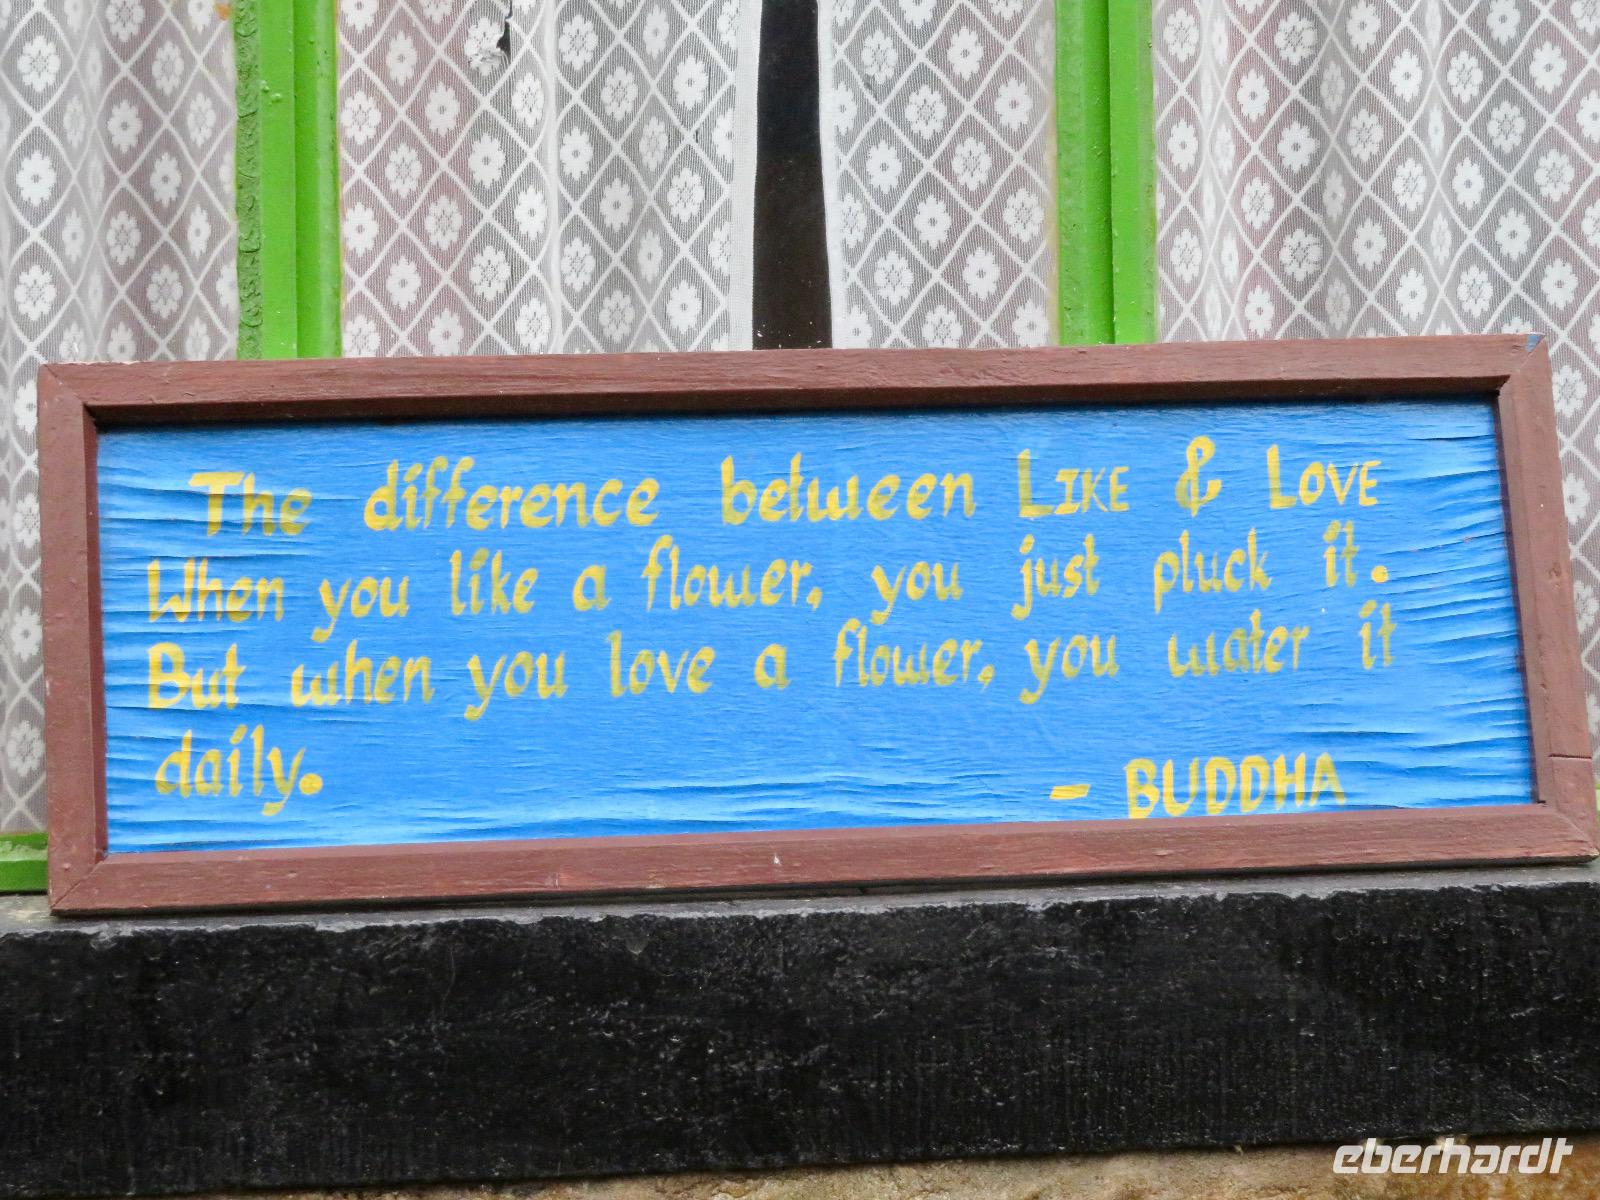 The difference between LIKE & LOVE
When you like a flower, you just pluck it.
But when you love a flower, you water it
daily.
- BUDDHA
eberhardt